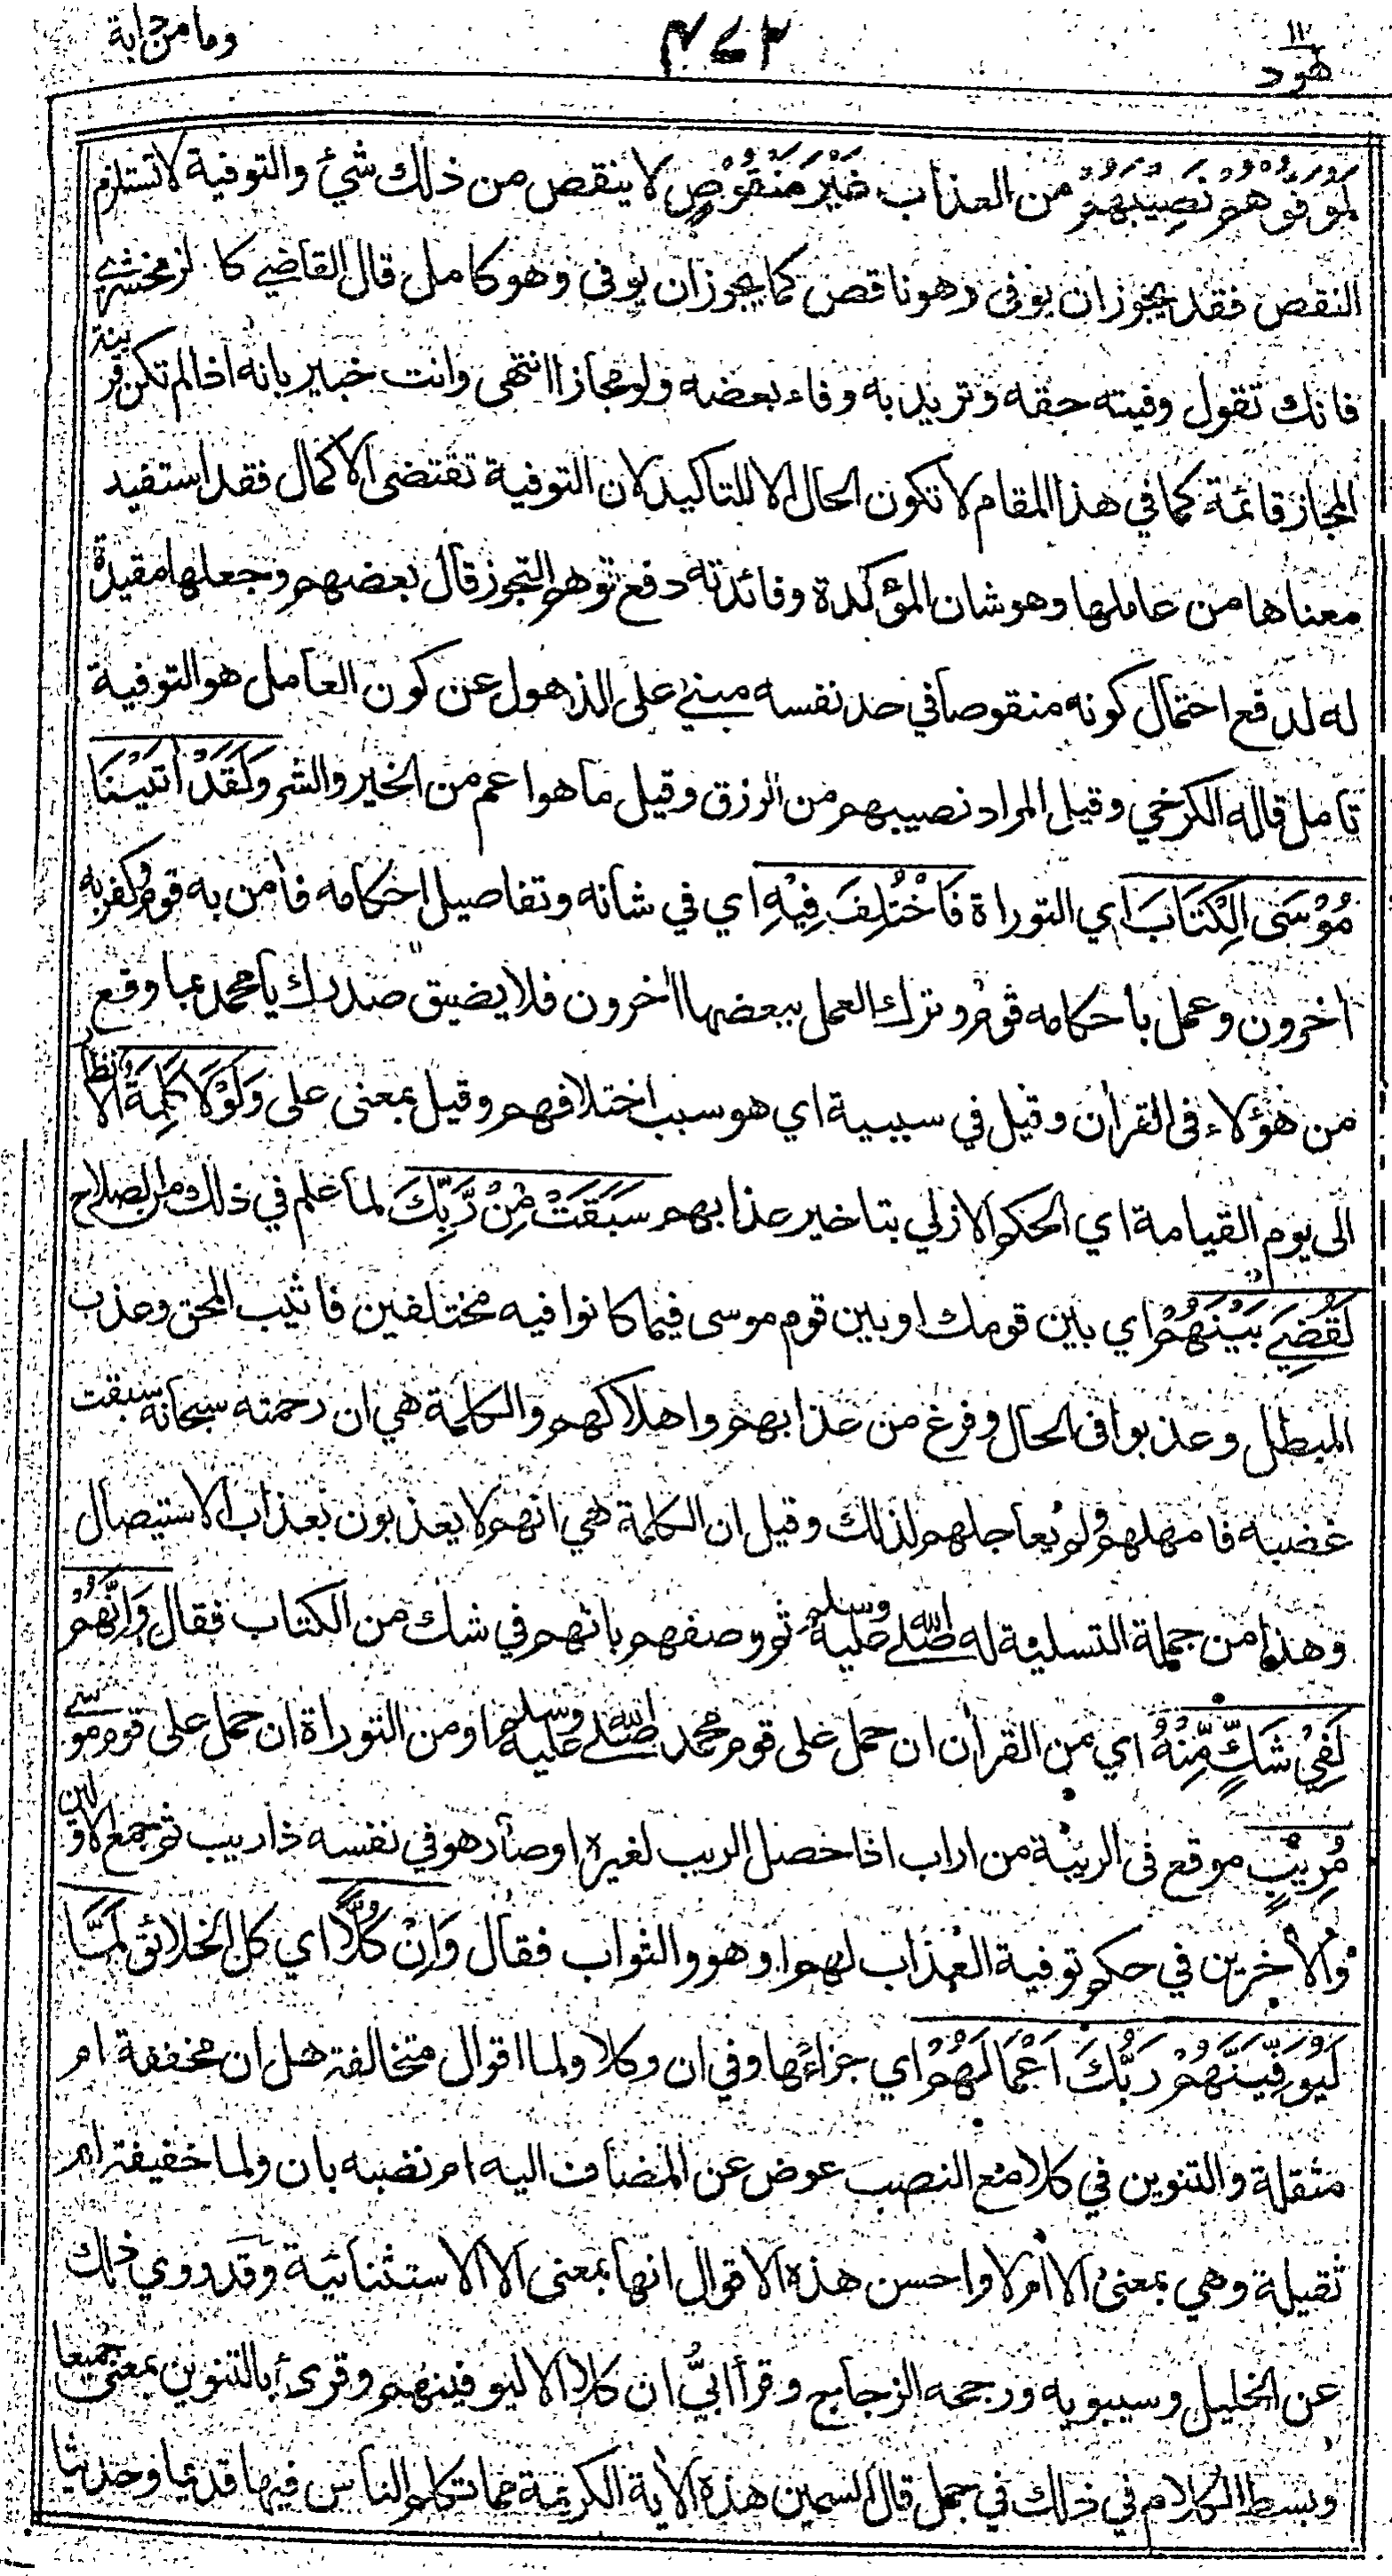 هود ١١
٣٧٤
وما من دابة
لَمُوَفُّوهُمْ نَصِيبَهُمْ من العذاب غَيْرَ مَنْقُوصٍ لا ينقص من ذلك شيء والتوفية لا تستلزم
النقص فقد يجوز ان يوفى وهو ناقص كما يجوز ان يوفى وهو كامل قال القاضي كالزمخشري
فانك تقول وفيته حقه وتريد به وفاء بعضه ولو مجازا انتهى وانت خبير بانه اذا لم تكن قرينة
المجاز قائمة كما في هذا المقام لا تكون الحال الا للتاكيد لان التوفية تقتضى الاكمال فقد استفيد
معناها من عاملها وهو شان المؤكدة وفائدته دفع توهم التجوز قال بعضهم وجعلها مقيدة
له لدفع احتمال كونه منقوصا في حد نفسه مبني على الذهول عن كون العامل هو التوفية
تأمل قاله الكرخي وقيل المراد نصيبهم من الرزق وقيل ما هو اعم من الخير والشر وَلَقَدْ اٰتَيْنَا
مُوْسَى الْكِتَابَ اي التوراة فَاخْتُلِفَ فِيْهِ اي في شانه وتفاصيل احكامه فأمن به قوم وكفر به
اخرون وعمل باحكامه قوم وترك العمل ببعضها أخرون فلا يضيق صدرك يا محمد بما وقع
من هؤلاء فى القرأن وقيل في سببية اي هو سبب اختلافهم وقيل بمعنى على وَلَوْلَا كَلِمَةٌ الانظار
الى يوم القيامة اي الحكم الازلي بتاخير عذابهم سَبَقَتْ مِنْ رَّبِّكَ لما علم في ذلك من الصلاح
لَقُضِيَ بَيْنَهُمْ اي بين قومك او بين قوم موسى فيما كانوا فيه مختلفين فاثيب المحق وعذب
المبطل وعذبوا فى الحال وفرغ من عذابهم واهلاكهم والكلمة هي ان رحمته سبحانه سبقت
غضبه فامهلهم ولم يعاجلهم لذلك وقيل ان الكلمة هي انهم لا يعذبون بعذاب الاستيصال
وهذا من جملة التسلية له صلى الله عليه وسلم ثم وصفهم بانهم في شك من الكتاب فقال وَاِنَّهُمْ
لَفِيْ شَكٍّ مِّنْهُ اي من القرأن ان حمل على قوم محمد صلى الله عليه وسلم او من التوراة ان حمل على قوم موسى
مُرِيْبٍ موقع فى الريبة من اراب اذا حصل الريب لغيره او صار هو في نفسه ذا ريب ثم جمع الاولين
والأخرين في حكم توفية العذاب لهم او هو والثواب فقال وَاِنْ كُلًّا اي كل الخلائق لَمَّا
لَيُوَفِّيَنَّهُمْ رَبُّكَ اَعْمَالَهُمْ اي جزاءها وفي ان وكلا ولما اقوال متخالفة هل ان مخففة ام
مثقلة والتنوين في كلا مع النصب عوض عن المضاف اليه ام نصبه بان ولما خفيفة ام
ثقيلة وهي بمعنى الا ام لا واحسن هذه الاقوال انها بمعنى الا الاستثنائية وقد روي ذلك
عن الخليل وسيبويه ورجحه الزجاج وقرأ ابيّ ان كلا الا ليوفينهم وقرئ بالتنوين بمعنى جميعا
وبسط الكلام في ذلك في جمل قال السمين هذه الأية الكريمة مما تكلم الناس فيها قديما وحديثا